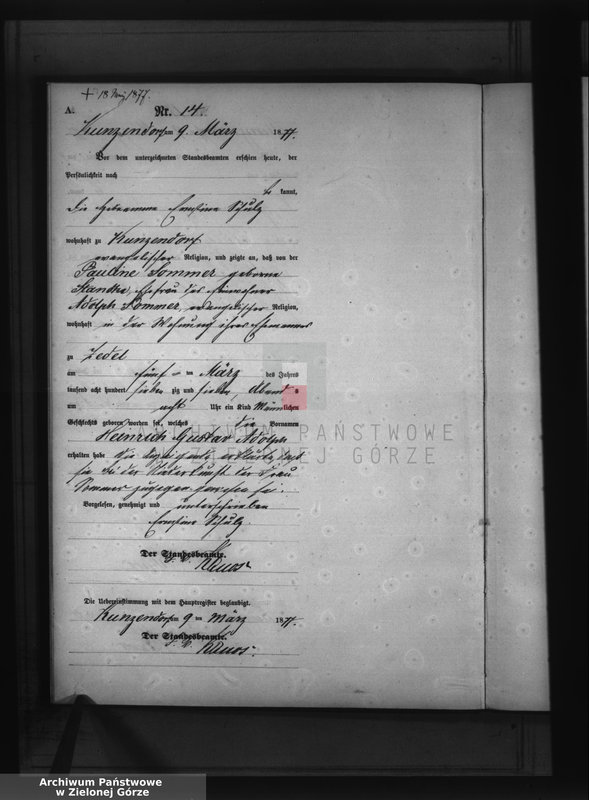 + 18 Mai 1877.
A.
Nr. 14
Kunzendorf am 9. März 1877.
Vor dem unterzeichneten Standesbeamten erschien heute, der
Persönlichkeit nach
be kannt,
die Hebeamme Ernstine Schulz
wohnhaft zu Kunzendorf
evangelischer Religion, und zeigte an, daß von der
Pauline Sommer geborne
Ehefrau des Einwohner
Adolph Sommer, evangelischer Religion,
wohnhaft in der Wohnung ihres Ehemannes
zu Zedel
am fünf ten März des Jahres
tausend acht hundert sieben zig und sieben, Abend s
um acht Uhr ein Kind Männlichen
Geschlechts geboren worden sei, welches die Vornamen
Heinrich Gustav Adolph
erhalten habe Die erklärte, daß
sie bei der Niederkunft der Frau
Sommer zugegen gewesen sei.
Vorgelesen, genehmigt und unterschrieben
Ernstine Schulz
Der Standesbeamte.
Klaus
Die Uebereinstimmung mit dem Hauptregister beglaubigt.
Kunzendorf am 9 ten März 1877.
Der Standesbeamte.
Klaus
ARCHIWUM PAŃSTWOWE
W ZIELONEJ GÓRZE
Archiwum Państwowe
w Zielonej Górze